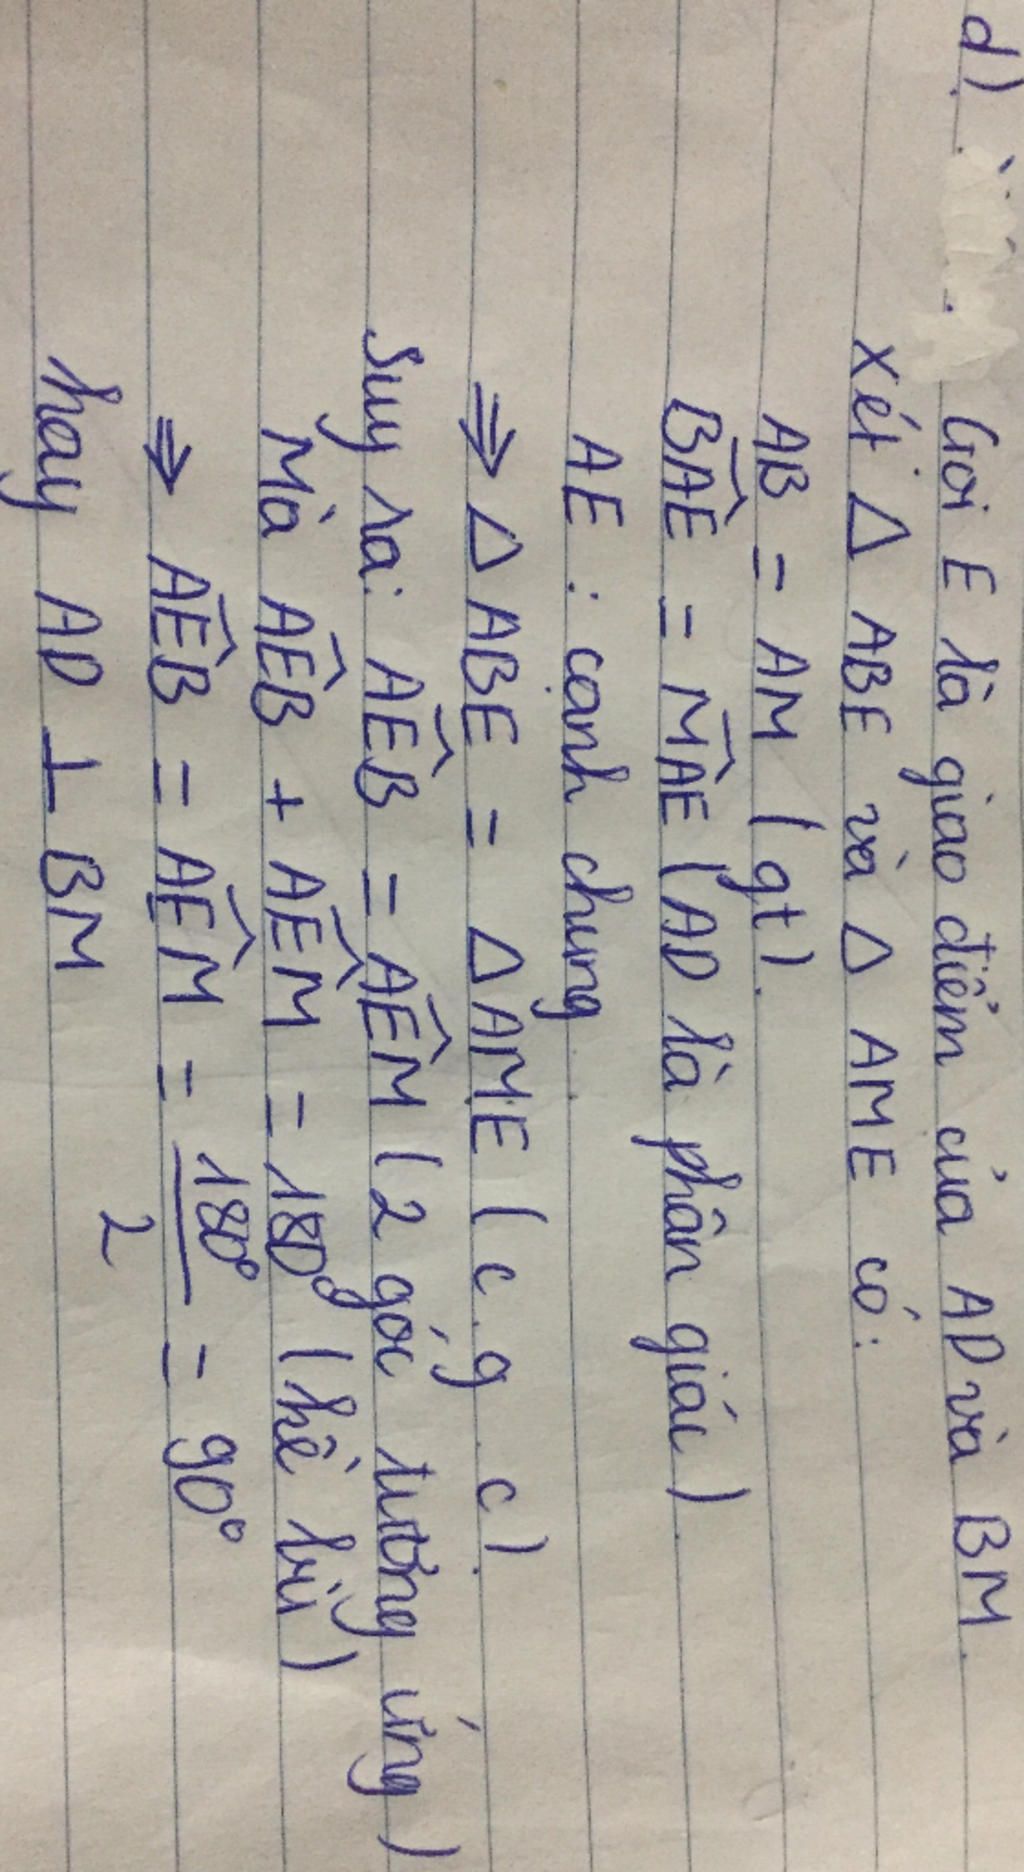 d).
Gọi E là giao điểm của AD và BM.
Xét Δ ABE và Δ AME có:
AB = AM (gt).
BÂE = MÂE (AD là phân giác).
AE : cạnh chung.
⇒ Δ ABE = Δ AME (c.g.c).
Suy ra: AÊB = AÊM (2 góc tương ứng)
Mà AÊB + AÊM = 180° (kề bù)
⇒ AÊB = AÊM = 180°/2 = 90°
hay AD ⊥ BM